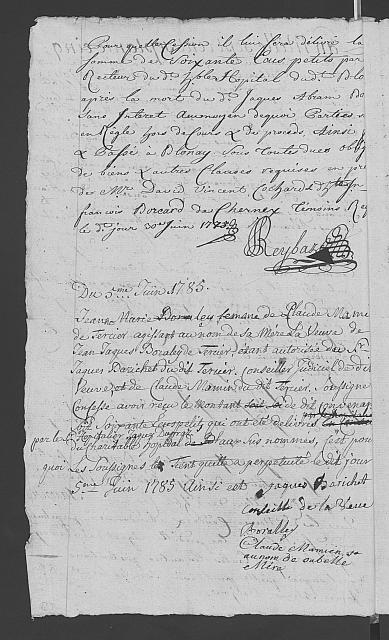 Pour quelle Cession il lui sera délivré la
somme de Soixante Ecus petits par
Recteur du d. Noble Hopital du d. Blo
après la mort du d. Jaques Abram
Sans Interet Au moyen de quoi Parties s
en Regle hors de Cours & de procès, Ainsi
& Passé à Blonay Sous toutes dues oblig
de biens & autres Clauses requises en pré
de Mr. David Vincent Cochard &
françois Borcard de Chernex temoins
le d. jour Juin 1785
Reybaz
Du 5me Juin 1785.
Jeanne Marie femme de Claude Mamin
de Tercier agissant au nom de sa Mère La Veuve
de Jean Jaques Boraley de Tercier, étant autorisée du Sr.
Jaques Dorichet du dit Tercier, Conseiller Judicial de dit
Veuve, et de Claude Mamin du dit Tercier, Soussigné
Confesse avoir reçu le montant de dit
soixante Ecus petits qui ont été délivrés
par le Sr. Hospitalier Jaques
du charitable hopital sus nommés, c'est pour
quoi Les Soussignés le tient quitte a perpetuité le dit jour
5me Juin 1785 Ainsi est Jaques Dorichet
Conseille de la Veve
Boralley
Claude Mamin
au nom de
Mère